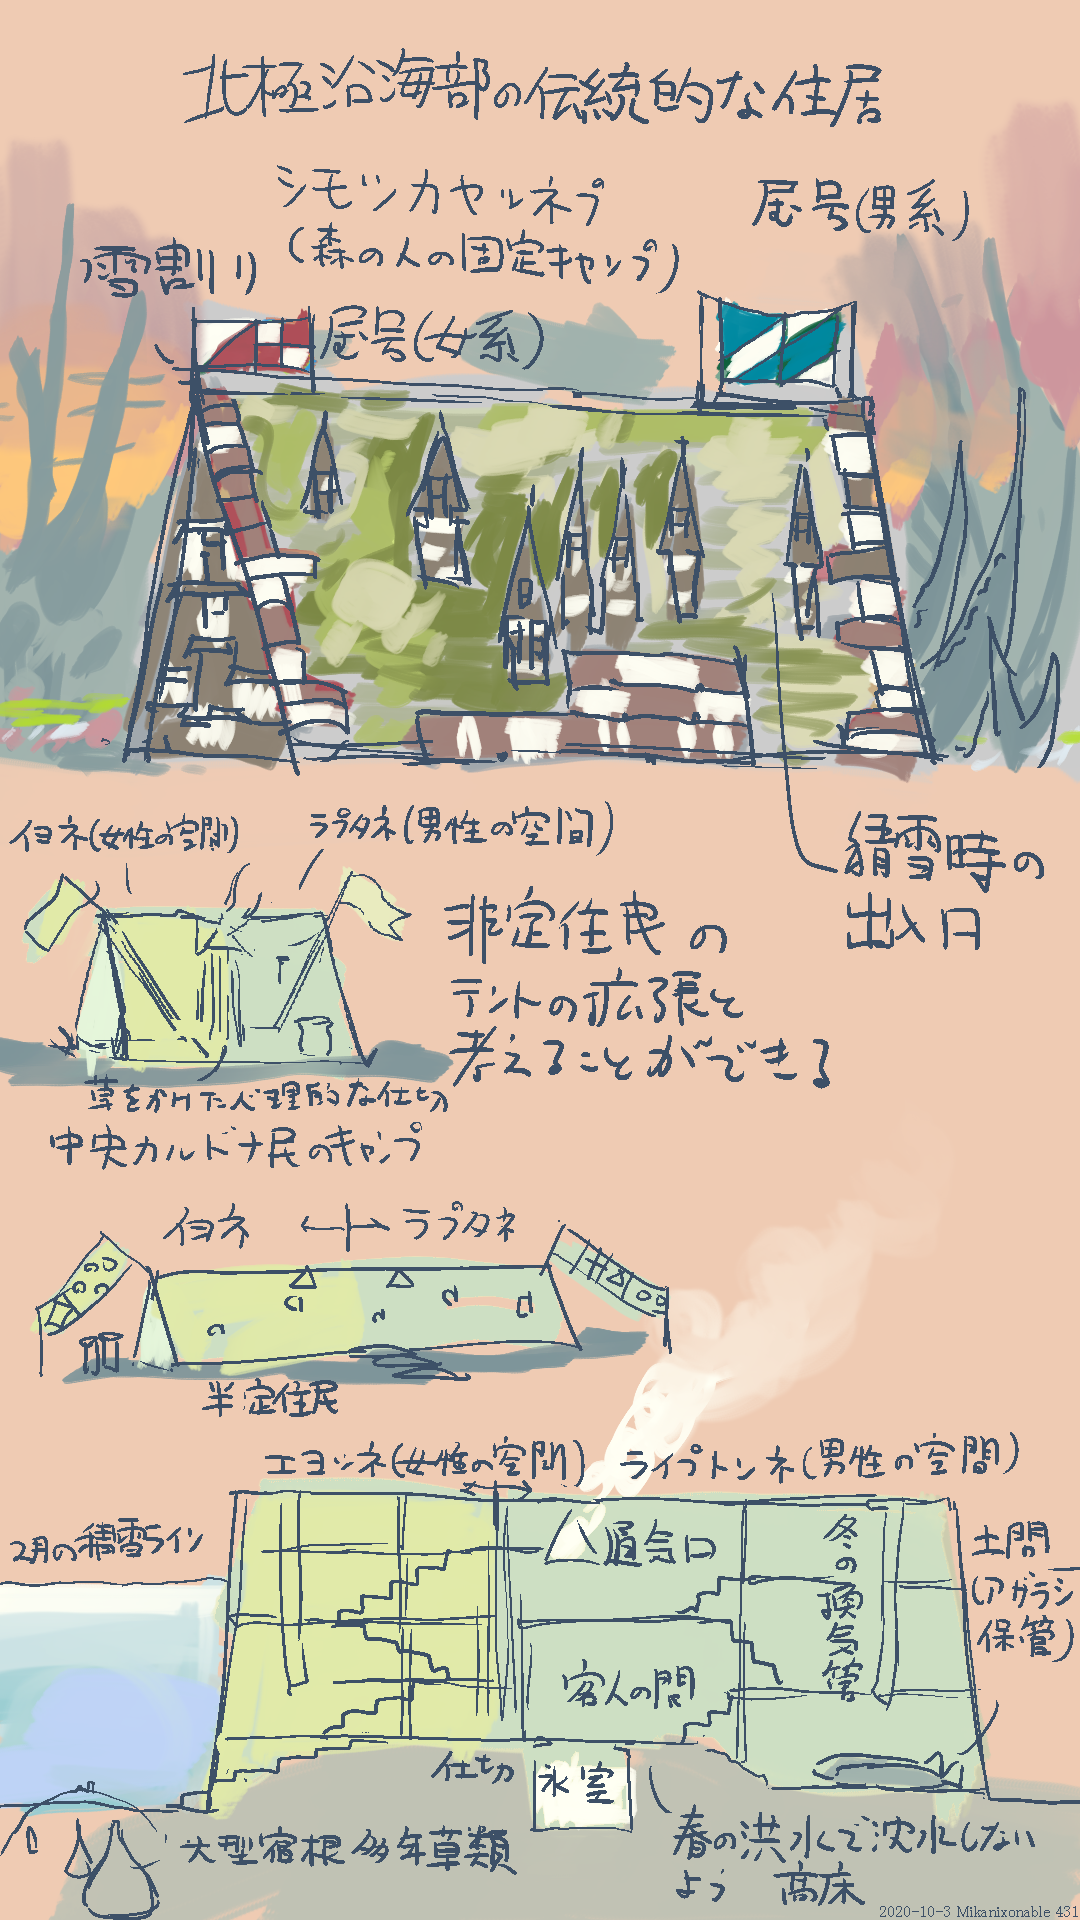 北極沿海部の伝統的な住居
シモツカヤルネプ
(森の人の固定キャンプ)
屋号(男系)
雪割り
屋号(女系)
イヨネ(女性の空間)
ラプタネ(男性の空間)
積雪時の
出入口
非定住民の
テントの拡張と
考えることができる
草をかけた心理的な仕切
中央カルドナ民のキャンプ
イヨネ ←|→ ラプタネ
半定住民
エヨンネ(女性の空間)
ライプトンネ(男性の空間)
2月の積雪ライン
通気口
冬の換気管
土間
(アザラシ
保管)
客人の間
仕切
氷室
大型宿根多年草類
春の洪水で沈水しない
よう 高床
2020-10-3 Mikanixonable 431